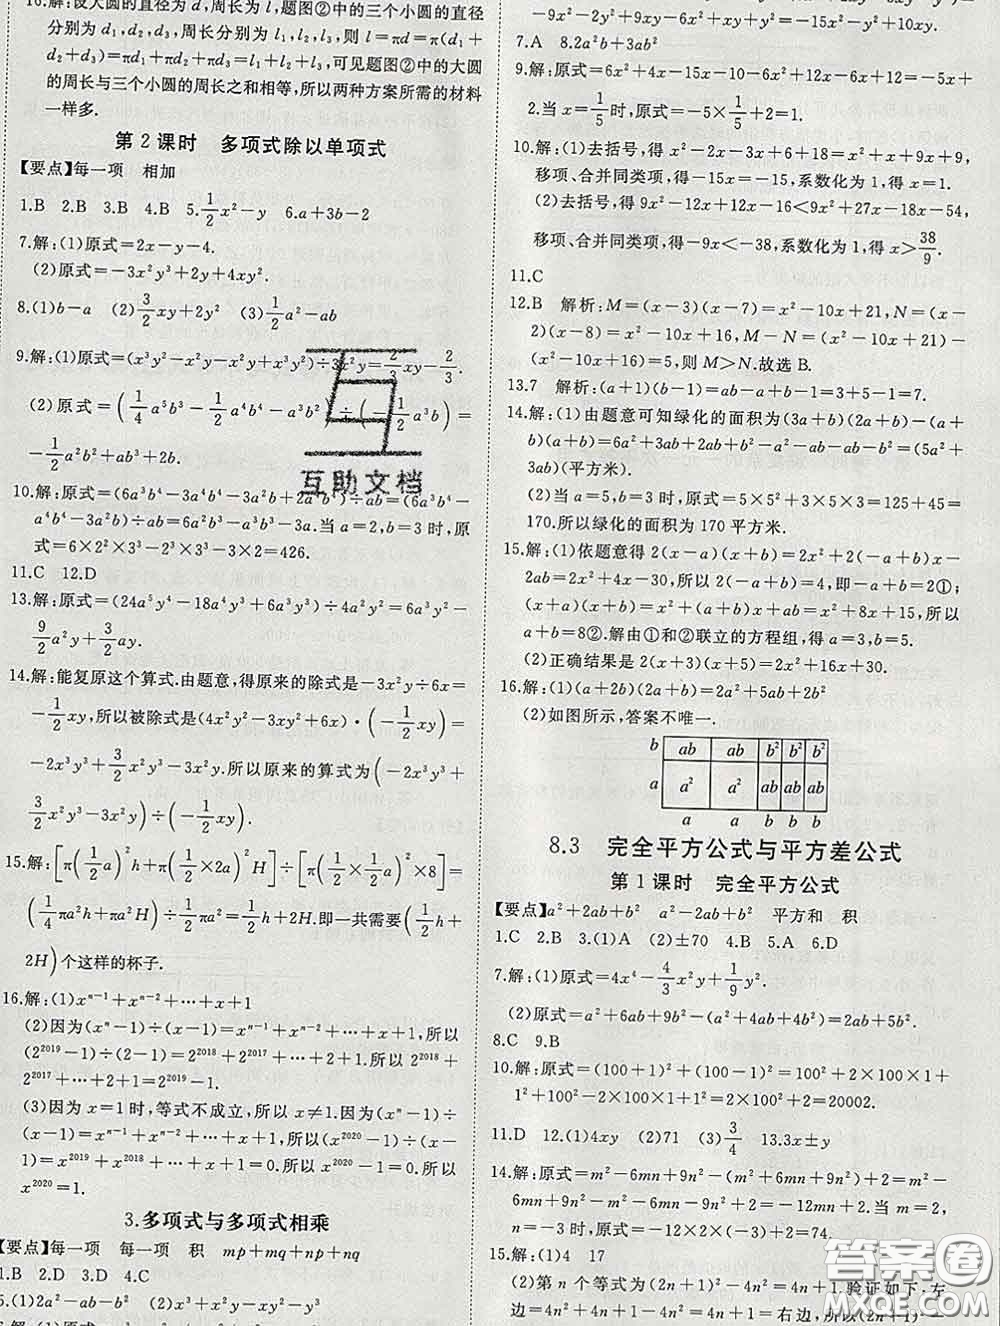 16.解:设大圆的直径为d,周长为l,题图②中的三个小圆的直径
分别为d₁,d₂,d₃,周长分别为l₁,l₂,l₃,则l=πd=π(d₁+
d₂+d₃)=πd₁+πd₂+πd₃=l₁+l₂+l₃,可见题图②中的大圆
的周长与三个小圆的周长之和相等,所以两种方案所需的材料
一样多.
第2课时 多项式除以单项式
【要点】每一项 相加
1.B 2.B 3.B 4.B 5.1/2x²-y 6.a+3b-2
7.解:(1)原式=2x-y-4.
(2)原式=-3x²y³+2y+4xy².
8.(1)b-a (2)3/2x²y (3)1/2a²-ab
9.解:(1)原式=(x³y²-x²y-x²y+x³y²)÷3x²y=2/3xy-2/3.
(2)原式=(1/4a⁵b³-1/2a⁴b⁴-a³b²)÷(-1/2a³b)=
-1/2a²b²+ab³+2b.
10.解:原式=(6a³b⁴-3a³b⁴-3a²b+2a⁴b⁴)÷ab=(6a³b⁴-
a⁴b⁴-3a²b)÷ab=6a²b³-a³b³-3a.当a=2,b=3时,原
式=6×2²×3³-2³×3³-3×2=426.
11.C 12.D
13.解:原式=(24a⁵y⁴-18a⁴y³+6a³y³)÷4a²y²=6a³y²-
9/2a²y+3/2ay.
14.解:能复原这个算式.由题意,得原来的除式是-3x²y÷6x=
-1/2xy,所以被除式是(4x²y²-3xy²+6x)·(-1/2xy)
=-2x³y³+3/2x²y³-3x²y.所以原来的算式为(-2x³y³+
3/2x²y³-3x²y)÷(-1/2xy).
15.解:[π(1/2a)²h+π(1/2×2a)²H]÷[π(1/2×1/2a)²×8]=
(1/4πa²h+πa²H)÷1/2πa²=1/2h+2H.即一共需要(1/2h+
2H)个这样的杯子.
16.解:(1)xⁿ⁻¹+xⁿ⁻²+…+x+1
(2)因为(xⁿ-1)÷(x-1)=xⁿ⁻¹+xⁿ⁻²+…+x+1,所以
(2²⁰¹⁹-1)÷(2-1)=2²⁰¹⁸+2²⁰¹⁷+…+2+1.所以2²⁰¹⁸+
2²⁰¹⁷+…+2+1=2²⁰¹⁹-1.
(3)因为x=1时,等式不成立,所以x≠1.因为(xⁿ-1)÷
(x-1)=xⁿ⁻¹+xⁿ⁻²+…+x+1,所以(x²⁰²⁰-1)÷(x-
1)=x²⁰¹⁹+x²⁰¹⁸+…+x+1=0.所以x²⁰²⁰-1=0.所以
x²⁰²⁰=1.
3.多项式与多项式相乘
【要点】每一项 每一项 积 mp+mq+np+nq
1.B 2.D 3.D 4.C
5.(1)2a²-ab-b² (2)x³-x²y+xy²-y³
7.A 8.2a²b+3ab²
9.解:原式=6x²+4x-15x-10-6x²+6x=-5x+
2.当x=1/5时,原式=-5×1/5+2=1.
10.解:(1)去括号,得x²-2x-3x+6+18=x²+9x+x+9,
移项、合并同类项,得-15x=-15,系数化为1,得x=1.
(2)去括号,得9x²-12x+12x-16<9x²+27x-18x-54,
移项、合并同类项,得-9x<-38,系数化为1,得x>38/9.
11.C
12.B 解析:M=(x-3)(x-7)=x²-10x+21,N=(x-
2)(x-8)=x²-10x+16,M-N=(x²-10x+21)-
(x²-10x+16)=5,则M>N.故选B.
13.7 解析:(a+1)(b-1)=ab-a+b-1=3+5-1=7.
14.解:(1)由题意可知绿化的面积为(3a+b)(2a+b)-(a+
b)(a+b)=6a²+3ab+2ab+b²-a²-2ab-b²=(5a²+
3ab)(平方米).
(2)当a=5,b=3时,原式=5×5²+3×5×3=125+45=
170.所以绿化的面积为170平方米.
15.解:(1)依题意得2(x-a)(x+b)=2x²+2(-a+b)x-
2ab=2x²+4x-30,所以2(-a+b)=4,即-a+b=2①;
(x+a)(x+b)=x²+(a+b)x+ab=x²+8x+15,所以a
+b=8②.解由①和②联立的方程组,得a=3,b=5.
(2)正确结果是2(x+3)(x+5)=2x²+16x+30.
16.解:(1)(a+2b)(2a+b)=2a²+5ab+2b²
(2)如图所示,答案不唯一.
b ab ab b² b² b²
a a² a² ab ab ab
a a b b b
8.3 完全平方公式与平方差公式
第1课时 完全平方公式
【要点】a²+2ab+b² a²-2ab+b² 平方和 积
1.C 2.B 3.(1)A (2)±70 4.B 5.A 6.D
7.解:(1)原式=4x⁴-4/3x²y+1/9y².
(2)原式=a²+6ab+9b²-(a²+4ab+4b²)=2ab+5b².
8.C 9.B
10.解:原式=(100+1)²+(100-1)²=100²+2×100×1+
1²+100²-2×100×1+1²=2×100²+2=20002.
11.D 12.(1)4xy (2)71 (3)3/4 13.3x±y
14.解:原式=m²-6mn+9n²-(m²+6mn+9n²)=m²-
6mn+9n²-m²-6mn-9n²=-12mn.当m=2,
n=-3时,原式=-12×2×(-3)+2=74.
15.解:(1)4 17
(2)第n个等式为(2n+1)²-4n²=4n+1.验证如下:左
边=4n²+4n+1-4n²=4n+1=右边,所以(2n+1)²
互助文档
答案圈
MXQE.COM